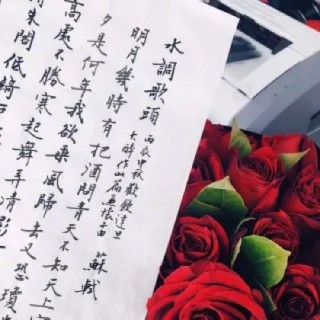 水調歌頭 丙辰中秋歡飲達旦
大醉作此篇兼懷子由 蘇軾
明月幾時有把酒問青天不知天上
夕是何年我欲乘風歸去又恐瓊
高處不勝寒起舞弄清影
朱閣低綺